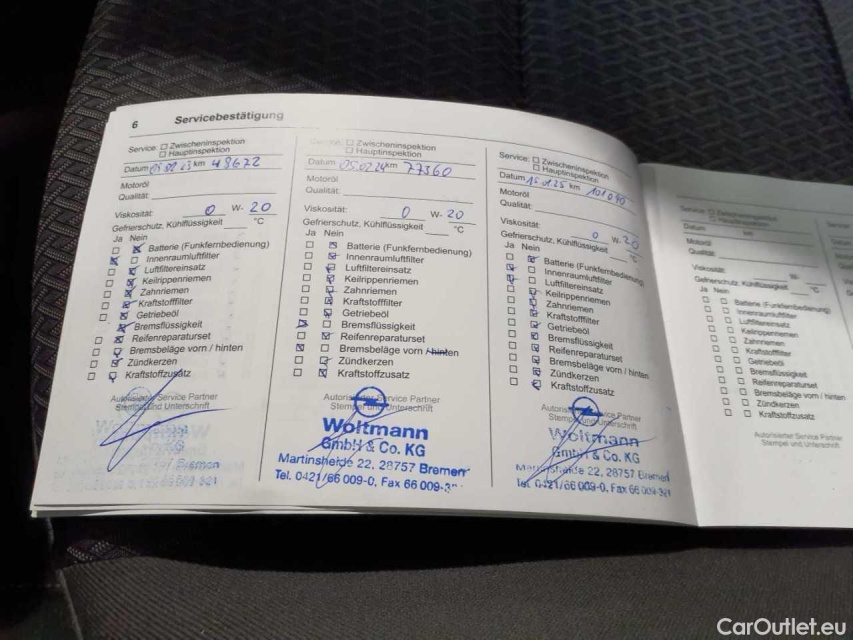 6 Servicebestätigung
Service: Zwischeninspektion
Hauptinspektion
Datum 23 km 48672
Motoröl
Qualität:
Viskosität: 0 W- 20
Gefrierschutz, Kühlflüssigkeit °C
Ja Nein
Batterie (Funkfernbedienung)
Innenraumluftfilter
Luftfiltereinsatz
Keilrippenriemen
Zahnriemen
Kraftstofffilter
Getriebeöl
Bremsflüssigkeit
Reifenreparaturset
Bremsbeläge vorn / hinten
Zündkerzen
Kraftstoffzusatz
Autorisierter Service Partner
Stempel und Unterschrift
Bremen
Service: Zwischeninspektion
Hauptinspektion
Datum 05.02.24 km 77360
Motoröl
Qualität:
Viskosität: 0 W- 20
Gefrierschutz, Kühlflüssigkeit °C
Ja Nein
Batterie (Funkfernbedienung)
Innenraumluftfilter
Luftfiltereinsatz
Keilrippenriemen
Zahnriemen
Kraftstofffilter
Getriebeöl
Bremsflüssigkeit
Reifenreparaturset
Bremsbeläge vorn / hinten
Zündkerzen
Kraftstoffzusatz
Autorisierter Service Partner
Stempel und Unterschrift
Woltmann
GmbH & Co. KG
Martinsheide 22, 28757 Bremen
Tel. 0421/66 009-0, Fax 66 009-
Service: Zwischeninspektion
Hauptinspektion
Datum 15.01.25 km 101090
Motoröl
Qualität:
Viskosität: 0 W- 20
Gefrierschutz, Kühlflüssigkeit °C
Ja Nein
Batterie (Funkfernbedienung)
Innenraumluftfilter
Luftfiltereinsatz
Keilrippenriemen
Zahnriemen
Kraftstofffilter
Getriebeöl
Bremsflüssigkeit
Reifenreparaturset
Bremsbeläge vorn / hinten
Zündkerzen
Kraftstoffzusatz
Autorisierter Service Partner
Stempel und Unterschrift
Woltmann
GmbH & Co. KG
Martinsheide 22, 28757 Bremen
Tel. 0421/66 009-0, Fax 66 009-321
Service:
Datum km
Motoröl
Qualität:
Viskosität: W-
Gefrierschutz, Kühlflüssigkeit °C
Ja Nein
Batterie (Funkfernbedienung)
Innenraumluftfilter
Luftfiltereinsatz
Keilrippenriemen
Zahnriemen
Kraftstofffilter
Getriebeöl
Bremsflüssigkeit
Reifenreparaturset
Bremsbeläge vorn / hinten
Zündkerzen
Kraftstoffzusatz
Autorisierter Service Partner
Stempel und Unterschrift
CarOutlet.eu